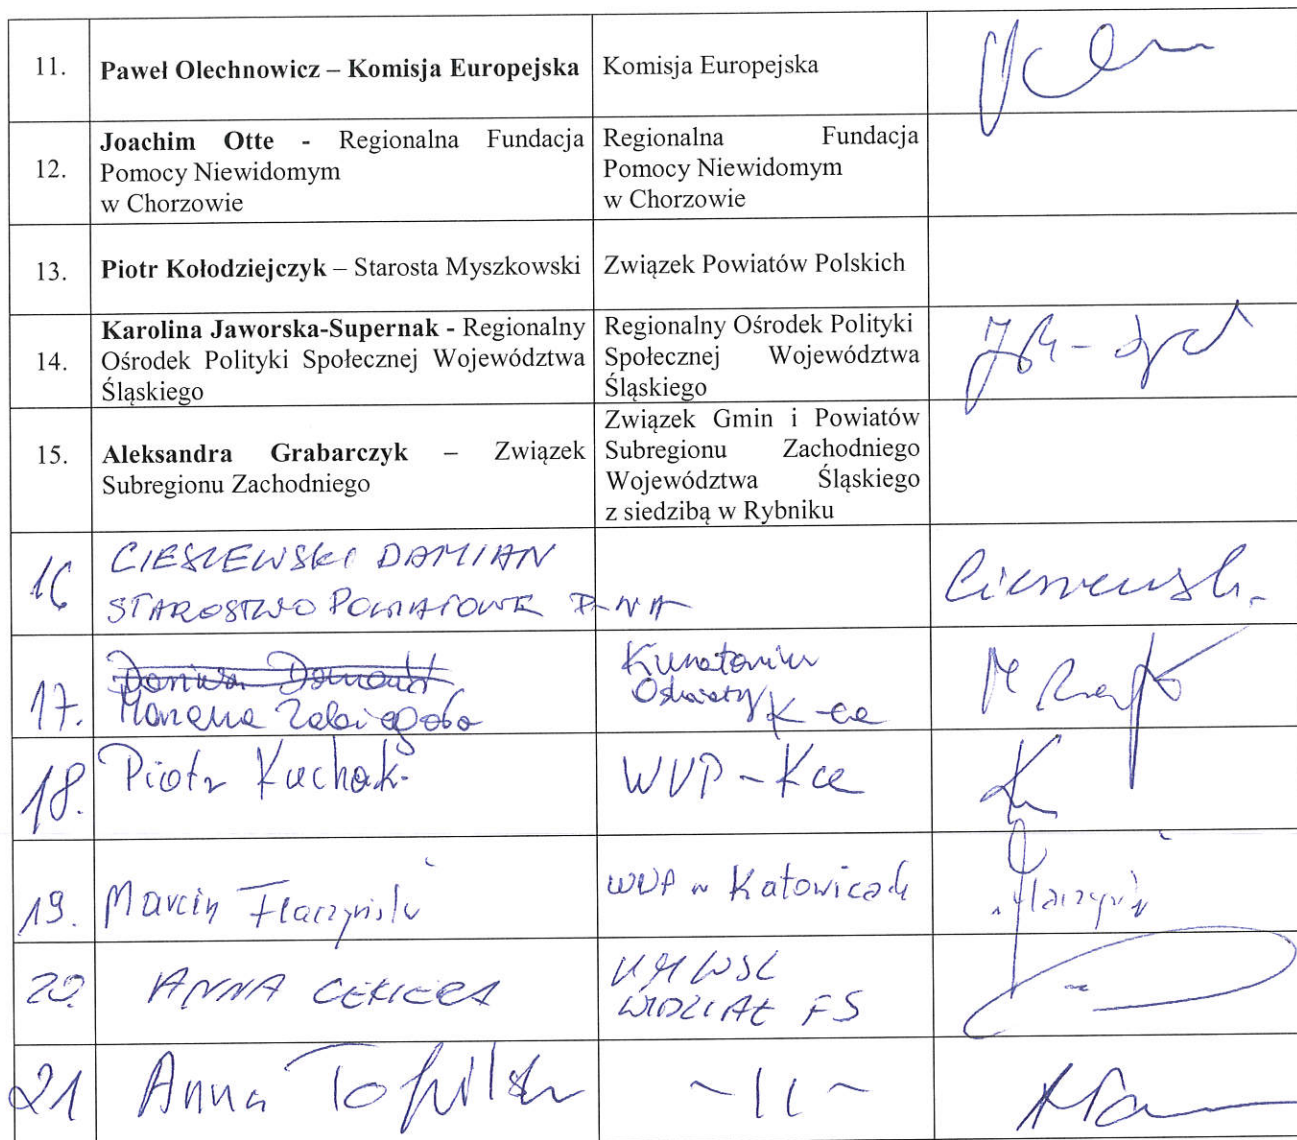 11.
Paweł Olechnowicz – Komisja Europejska
Komisja Europejska
12.
Joachim Otte - Regionalna Fundacja
Pomocy Niewidomym
w Chorzowie
Regionalna Fundacja
Pomocy Niewidomym
w Chorzowie
13.
Piotr Kołodziejczyk – Starosta Myszkowski
Związek Powiatów Polskich
14.
Karolina Jaworska-Supernak - Regionalny
Ośrodek Polityki Społecznej Województwa
Śląskiego
Regionalny Ośrodek Polityki
Społecznej Województwa
Śląskiego
15.
Aleksandra Grabarczyk – Związek
Subregionu Zachodniego
Związek Gmin i Powiatów
Subregionu Zachodniego
Województwa Śląskiego
z siedzibą w Rybniku
16
CIESZEWSKI DAMIAN
STAROSTWO POWIATOWE
17.
Marzena
Kuratorium
Oświaty K-ce
18.
Piotr Kuchak
WUP - Kce
19.
Marcin Flaczyński
WUP w Katowicach
20.
ANNA CEKIERA
UMWSL
WYDZIAŁ FS
21
Anna Topilska
~ıı~